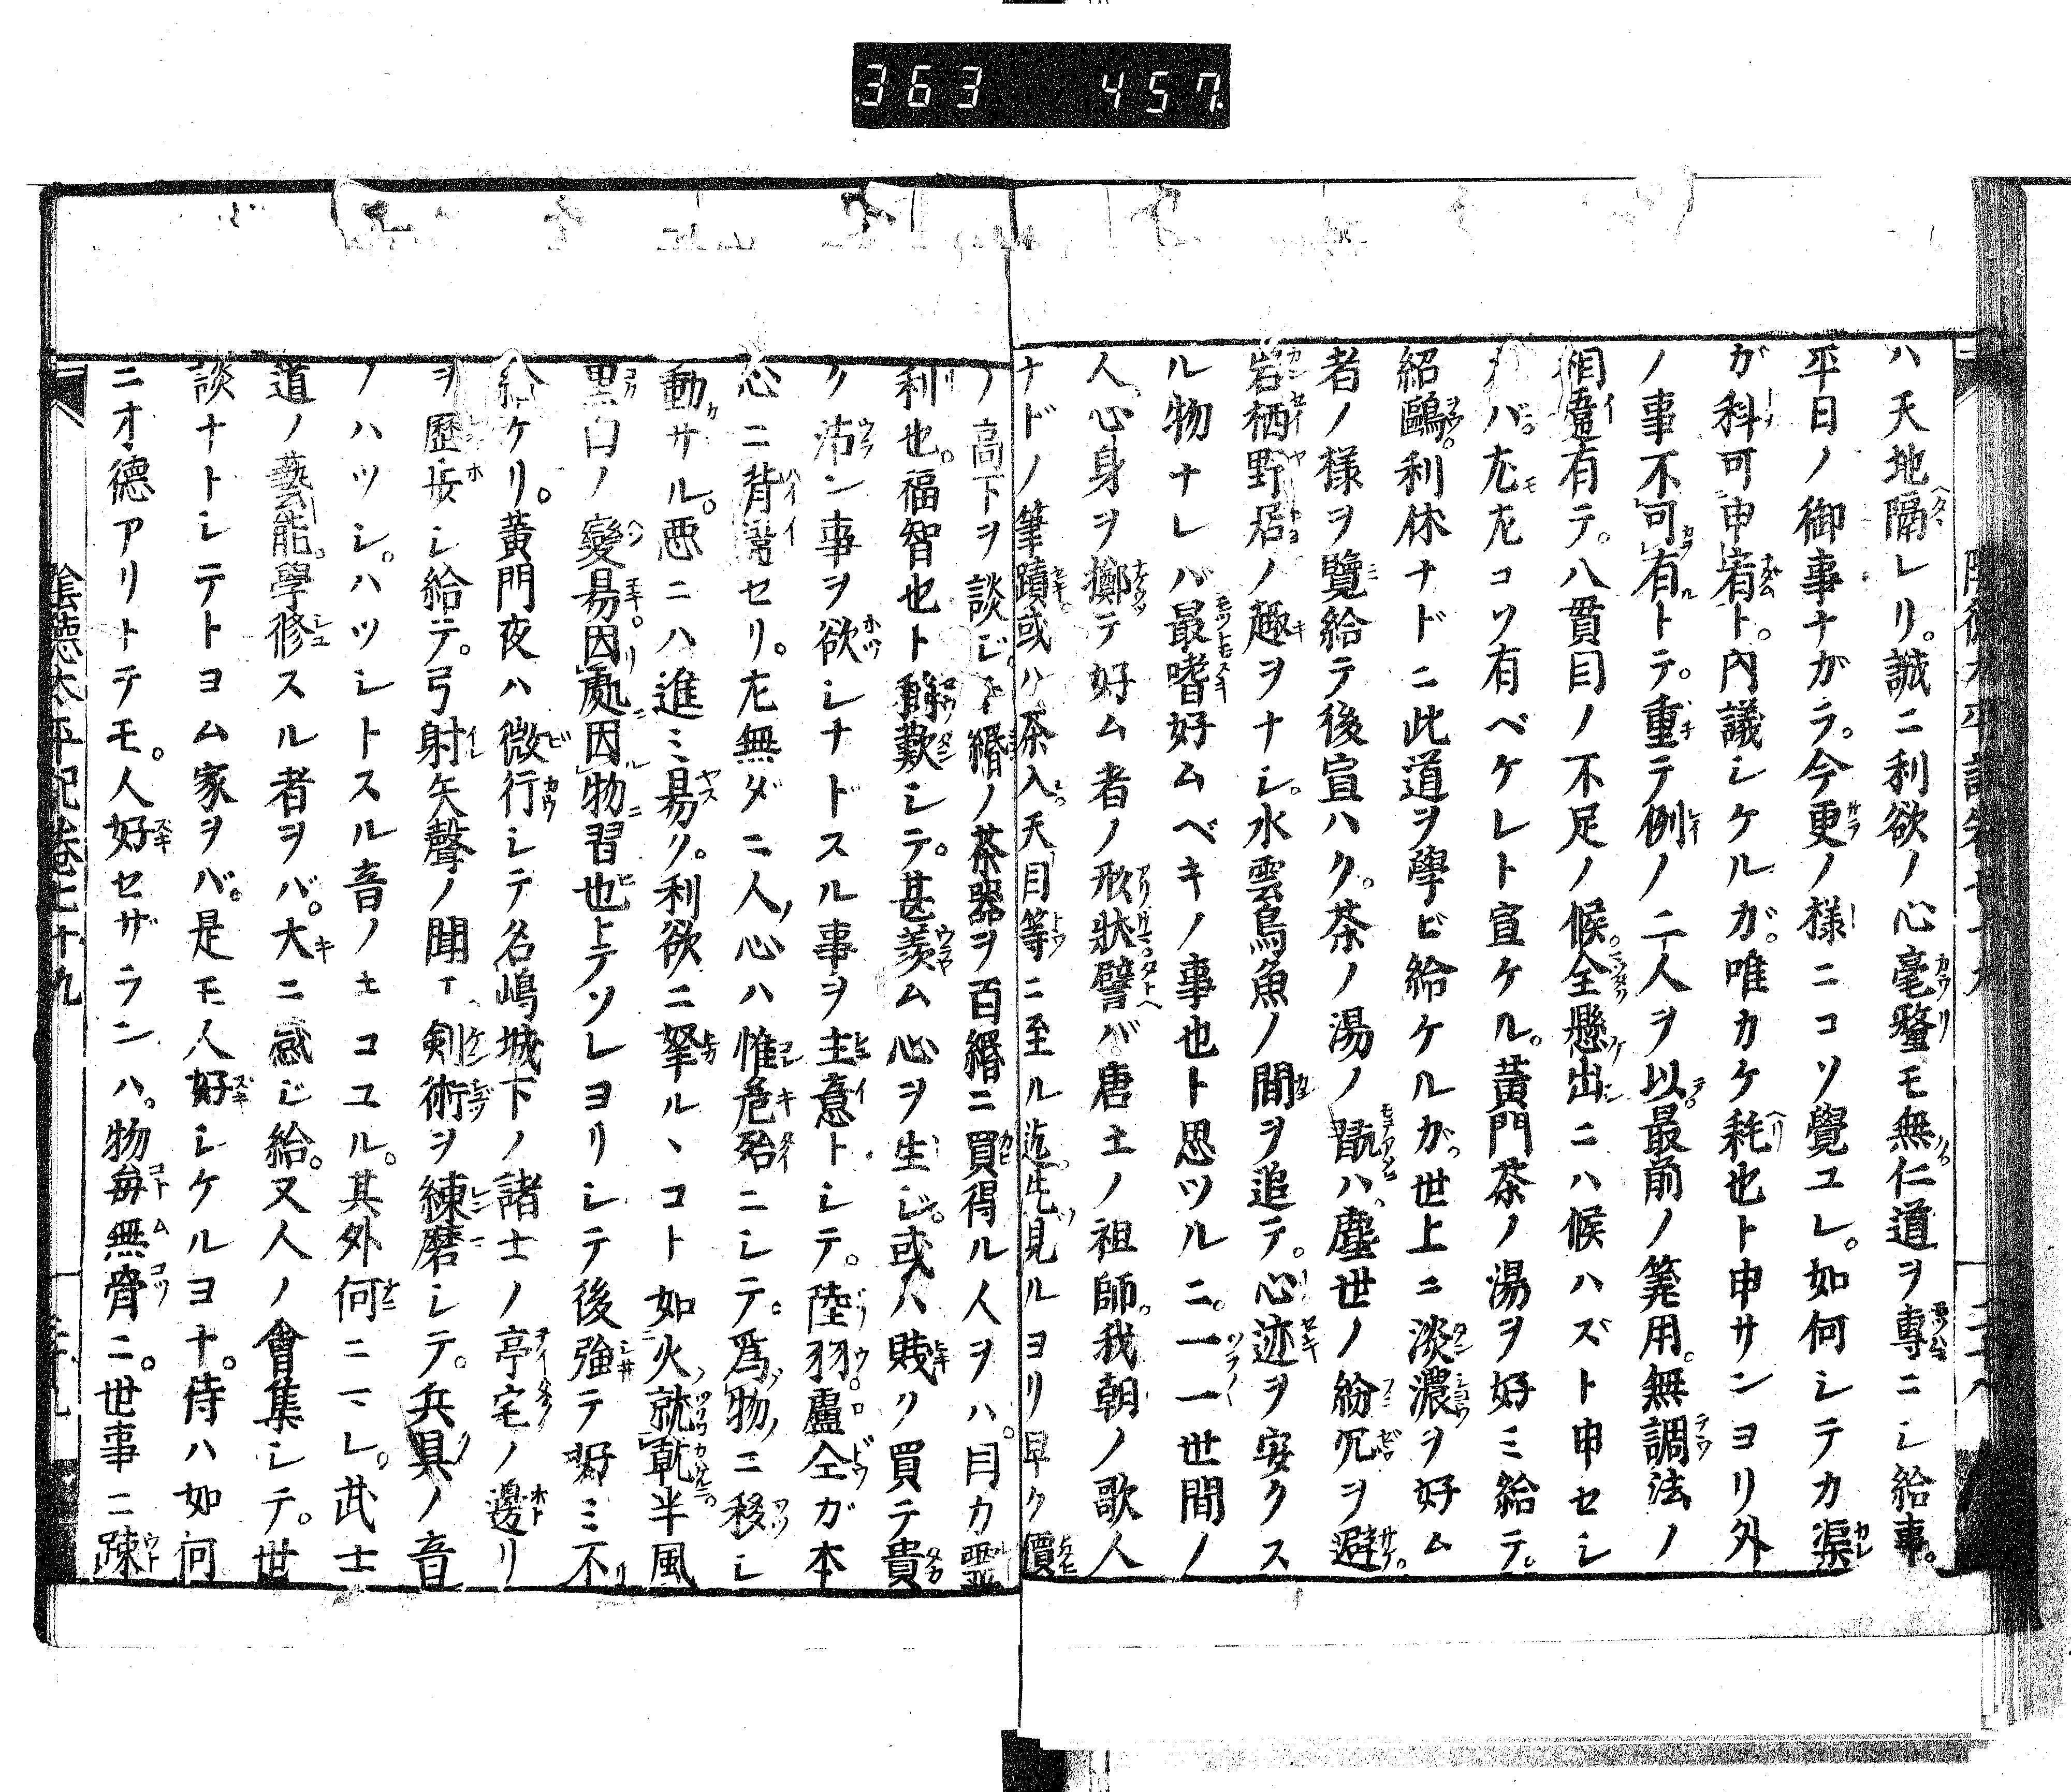 363 457
ハ天地隔レリ。誠ニ利欲ノ心毫釐モ無仁道ヲ專ニシ給事。
平日ノ御事ナガラ。今更ノ様ニコソ覺ユレ。如何シテカ渠
ガ科可申宥ト。内議シケルガ。唯カケ耗也ト申サンヨリ外
ノ事不可有トテ。重テ例ノ二人ヲ以最前ノ筭用。無調法ノ
相違有テ。八貫目ノ不足ノ候。全懸出ニハ候ハズト申セシ
バ。尤尤コソ有ベケレト宣ケル。黄門茶ノ湯ヲ好ミ給テ。
紹鷗。利休ナドニ此道ヲ學ビ給ケルガ。世上ニ淡濃ヲ好ム
者ノ様ヲ覽給テ後宣ハク。茶ノ湯ノ翫ハ。塵世ノ紛冗ヲ避
岩栖野居ノ趣ヲナシ。水雲鳥魚ノ間ヲ追テ。心迹ヲ安クス
ル物ナレバ最嗜好ムベキノ事也ト思ツルニ。一一世間ノ
人心身ヲ擲テ好ム者ノ形狀譬バ唐土ノ祖師。我朝ノ歌人
ナドノ筆蹟。或ハ茶入天目等ニ至ル迄。先見ルヨリ早ク價
ノ高下ヲ談ジ。千緡ノ茶器ヲ百緡ニ買得ル人ヲハ。目カ
利也。福智也ト歎シテ。甚羨ム心ヲ生ジ。或ハ賤ク買テ貴
ク沽ン事ヲ欲シナドスル事ヲ主意トシテ。陸羽。盧仝ガ本
心ニ背セリ。尤無ダニ人心ハ惟危殆ニシテ。爲物ニ移シ
動サル。悪ニハ進ミ易ク。利欲ニ拏ルヽコト如火就乾半風
黒白ノ變易。因處因物習也トテソレヨリシテ後強テ好ミ不
給ケリ。黄門夜ハ微行シテ名嶋城下ノ諸士ノ亭宅ノ邊リ
ヲ歷歩シ給テ。弓射矢聲ノ聞エ、剣術ヲ練磨シテ。兵具ノ音
ノハツシ。ハツシトスル音ノキコユル。其外何ニマレ。武士
道ノ藝能。學修スル者ヲバ。大ニ感ジ給。又人ノ會集シテ。世
談ナトシテトヨム家ヲバ。是モ人好シケルヨナ。侍ハ如何
ニオ德アリトテモ。人好セザランハ。物毎無骨ニ。世事ニ疎
陰德太平記卷七十九